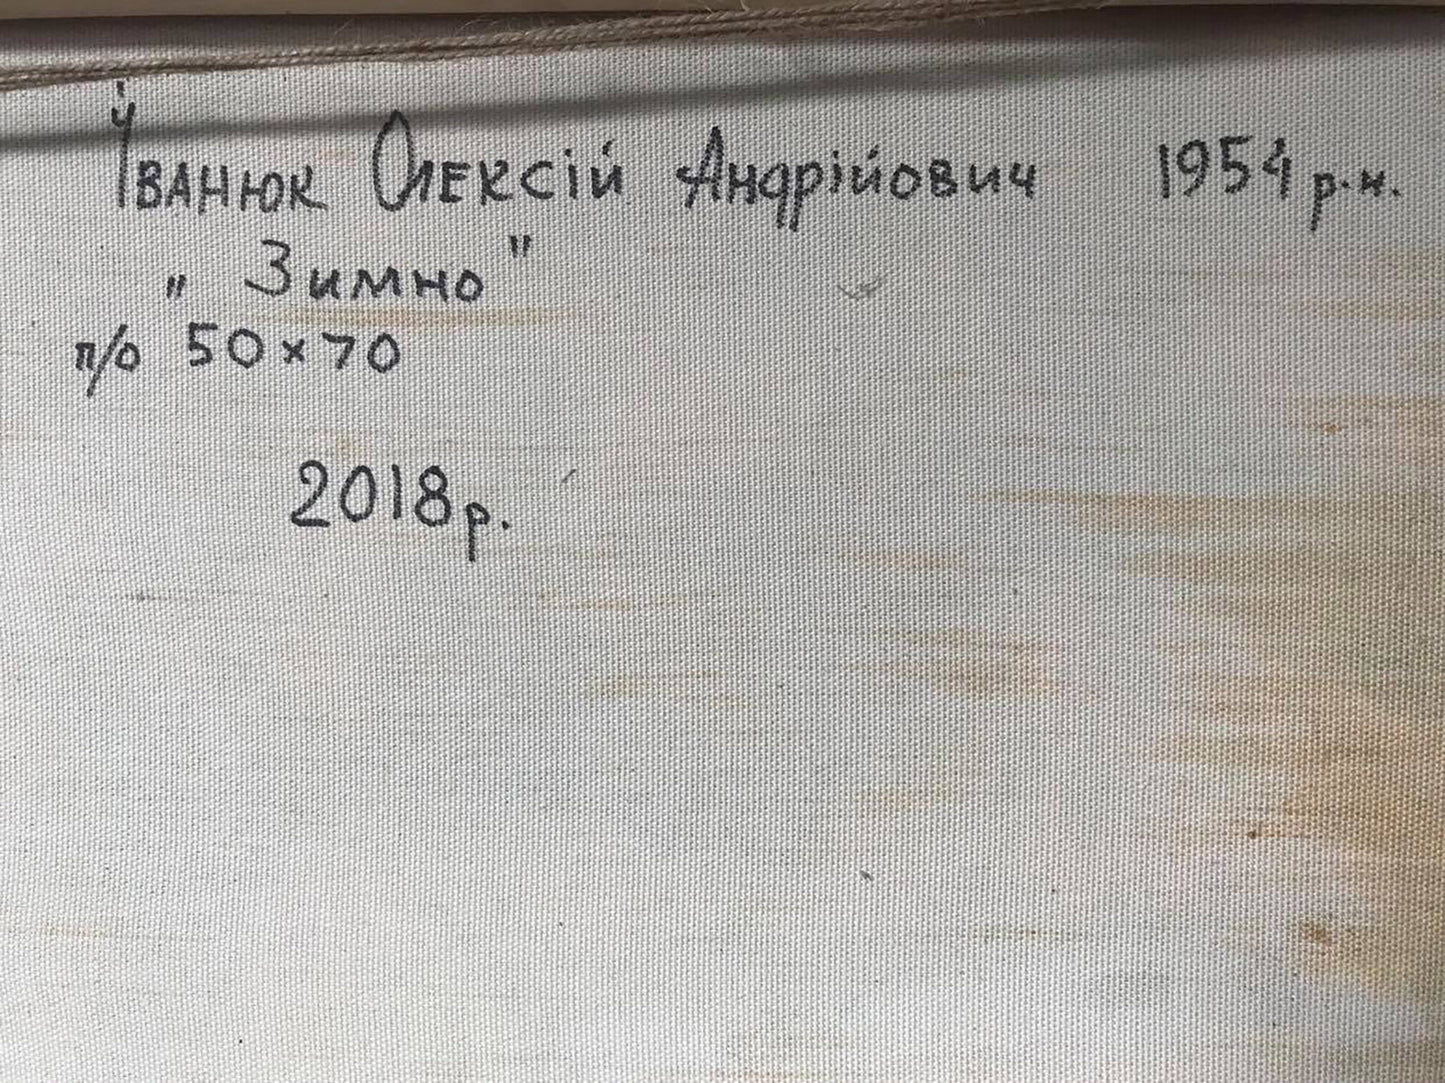 Іванюк Олексій Андрійович 1954 р.н.
„ Зимно"
п/о 50×70
2018р.